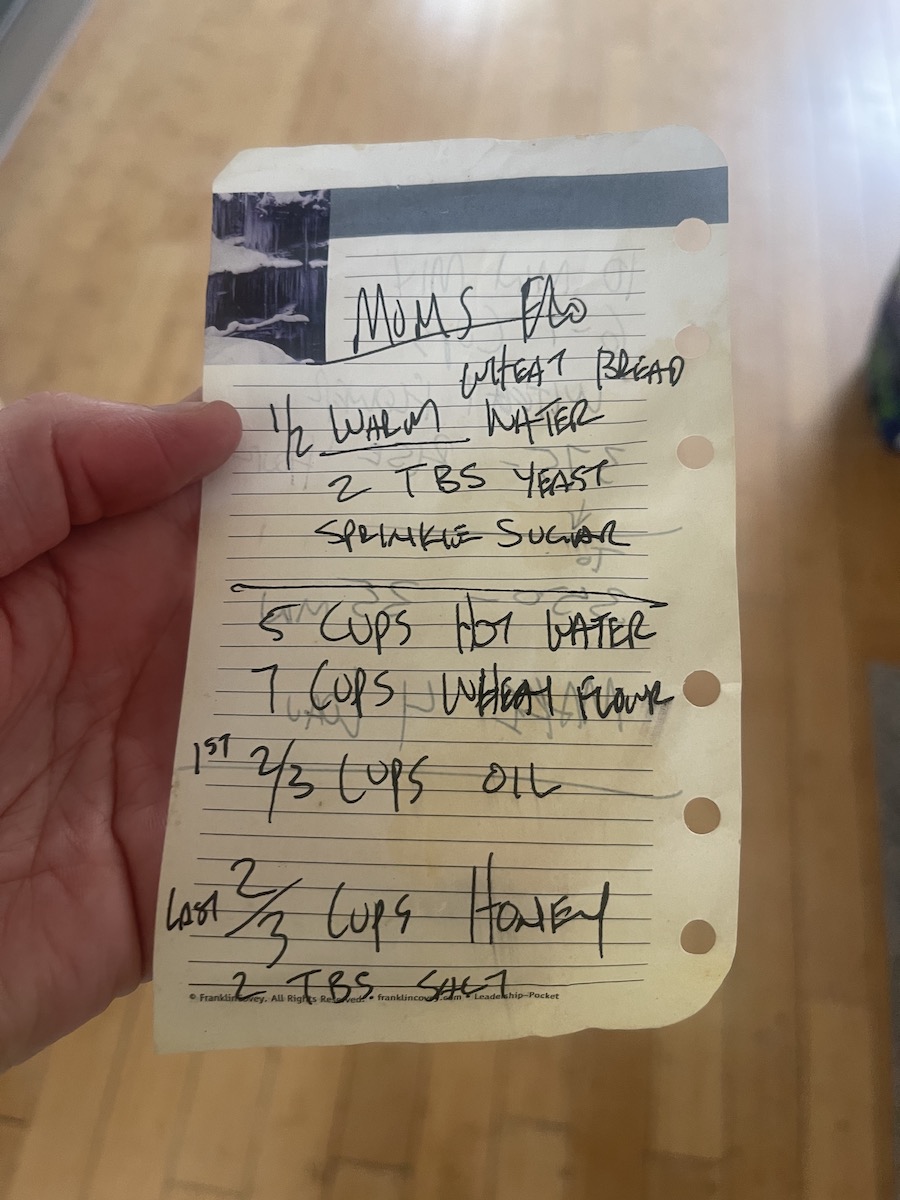 MOMS Flo
WHEAT BREAD
1/2 WARM WATER
2 TBS YEAST
SPRINKLE SUGAR
5 CUPS HOT WATER
7 CUPS WHEAT FLOUR
1ST 2/3 CUPS OIL
LAST 2/3 CUPS HONEY
2 TBS SALT
© FranklinCovey. All Rights Reserved. • franklincovey.com • Leadership–Pocket